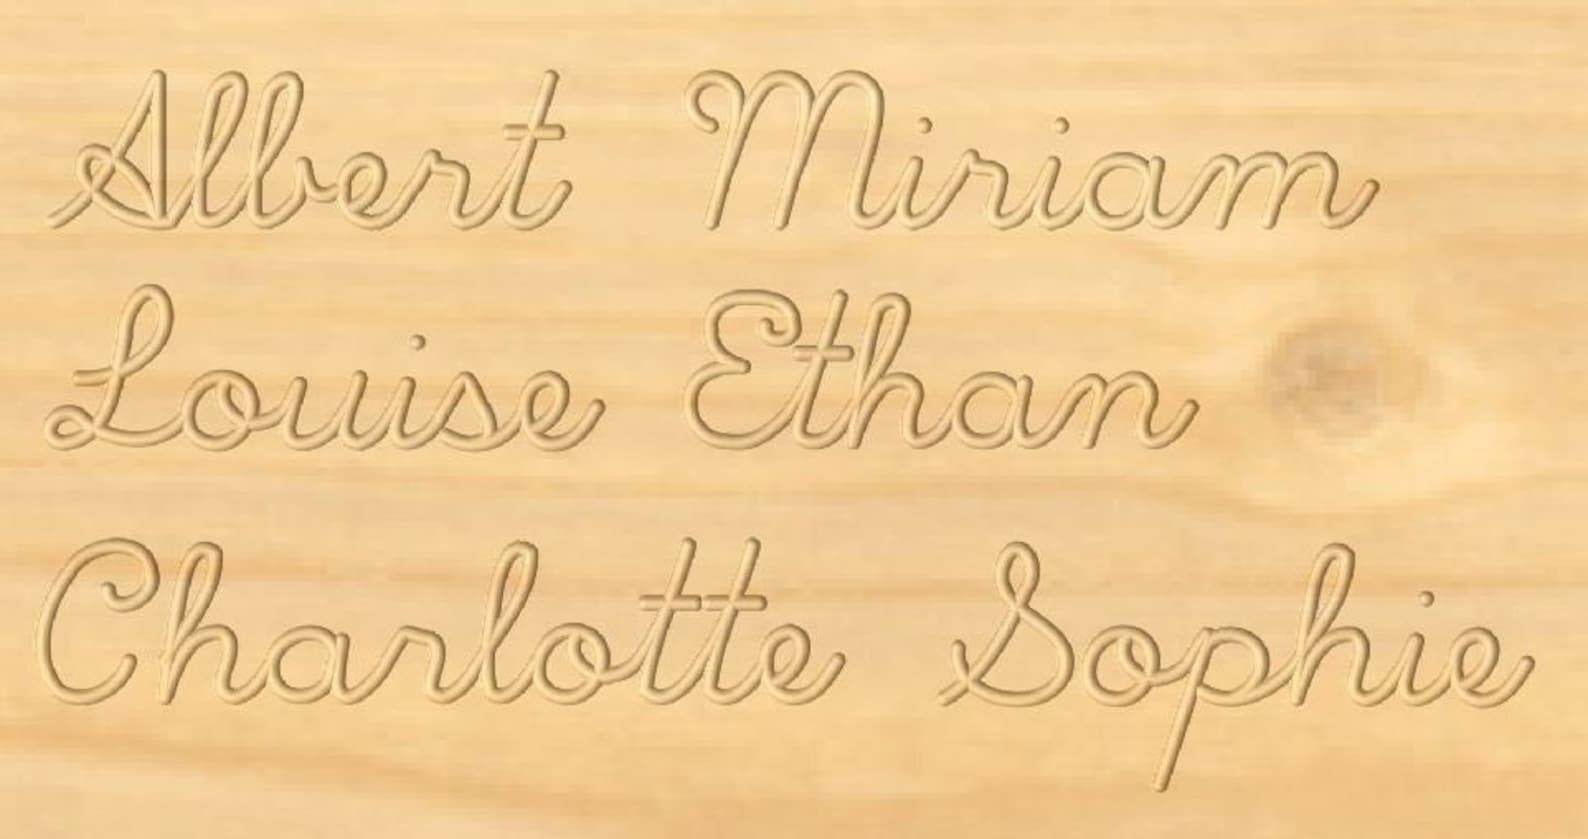 Albert Miriam
Louise Ethan
Charlotte Sophie